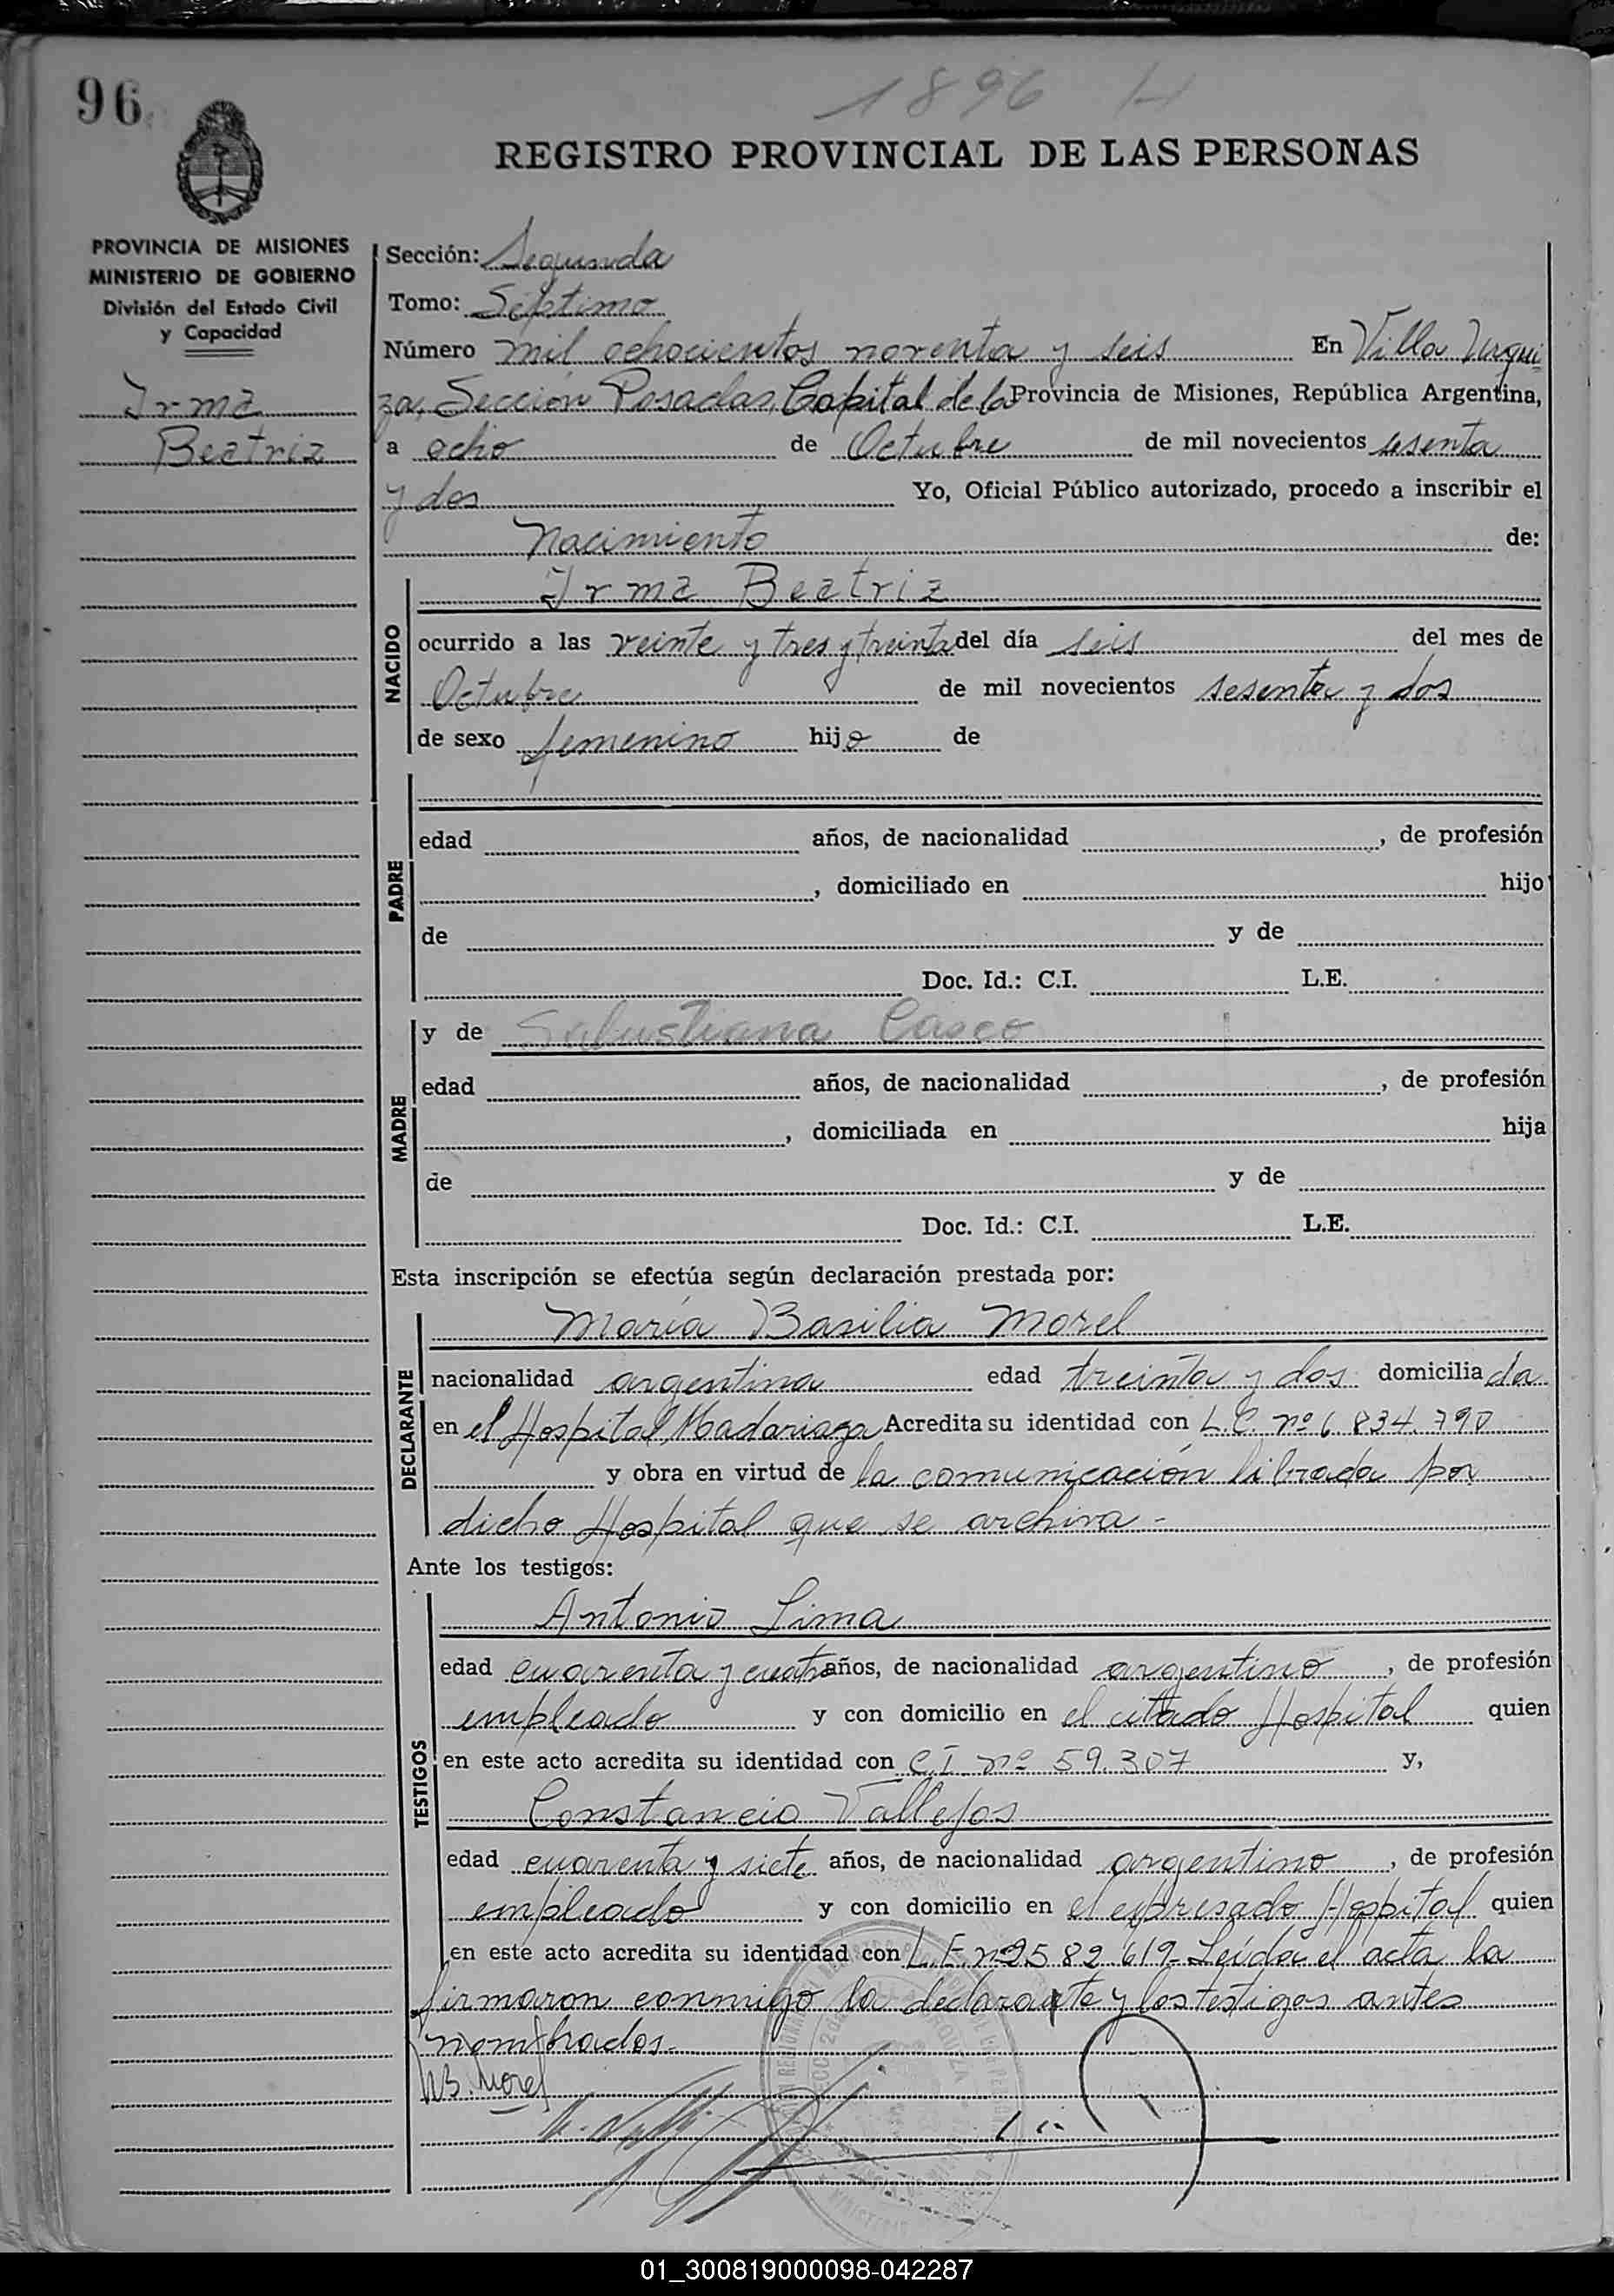 96
1896 H
REGISTRO PROVINCIAL DE LAS PERSONAS
PROVINCIA DE MISIONES
MINISTERIO DE GOBIERNO
División del Estado Civil
y Capacidad
Irma
Beatriz
Sección: Segunda
Tomo: Séptimo
Número mil ochocientos noventa y seis En Villa Urqui
za, Sección Posadas, Capital de la Provincia de Misiones, República Argentina,
a ocho de Octubre de mil novecientos sesenta
y dos Yo, Oficial Público autorizado, procedo a inscribir el
Nacimiento de:
NACIDO
Irma Beatriz
ocurrido a las veinte y tres y treinta del día seis del mes de
Octubre de mil novecientos sesenta y dos
de sexo femenino hija de
PADRE
edad años, de nacionalidad , de profesión
, domiciliado en hijo
de y de
Doc. Id.: C.I. L.E.
MADRE
y de Salustiana Casco
edad años, de nacionalidad , de profesión
, domiciliada en hija
de y de
Doc. Id.: C.I. L.E.
Esta inscripción se efectúa según declaración prestada por:
DECLARANTE
María Basilia Morel
nacionalidad argentina edad treinta y dos domiciliada
en el Hospital Madariaga Acredita su identidad con L.C. nº 6.834.790
y obra en virtud de la comunicación librada por
dicho Hospital que se archiva-
Ante los testigos:
TESTIGOS
Antonio Lima
edad cuarenta y cuatro años, de nacionalidad argentino, de profesión
empleado y con domicilio en el citado Hospital quien
en este acto acredita su identidad con C.I. nº 59.307 y,
Constancio Vallejos
edad cuarenta y siete años, de nacionalidad argentino, de profesión
empleado y con domicilio en el expresado Hospital quien
en este acto acredita su identidad con L.E. nº 2582.619- Leída el acta la
firmaron conmigo la declarante y los testigos antes
nombrados.-
M B. Morel
01_300819000098-042287